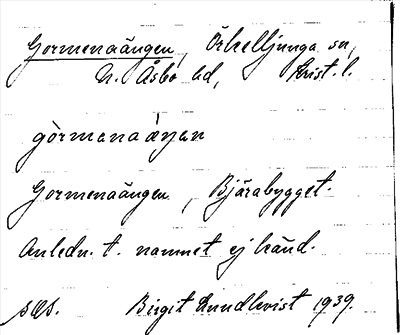 Gormenaängen, Örkelljunga sn,
N. Åsbo hd, Krist. l.
gòrmenaáŋen
Gormenaängen, Bjärabygget.
Anledn. t. namnet ej känd.
sas. Birgit Lundkvist 1939.